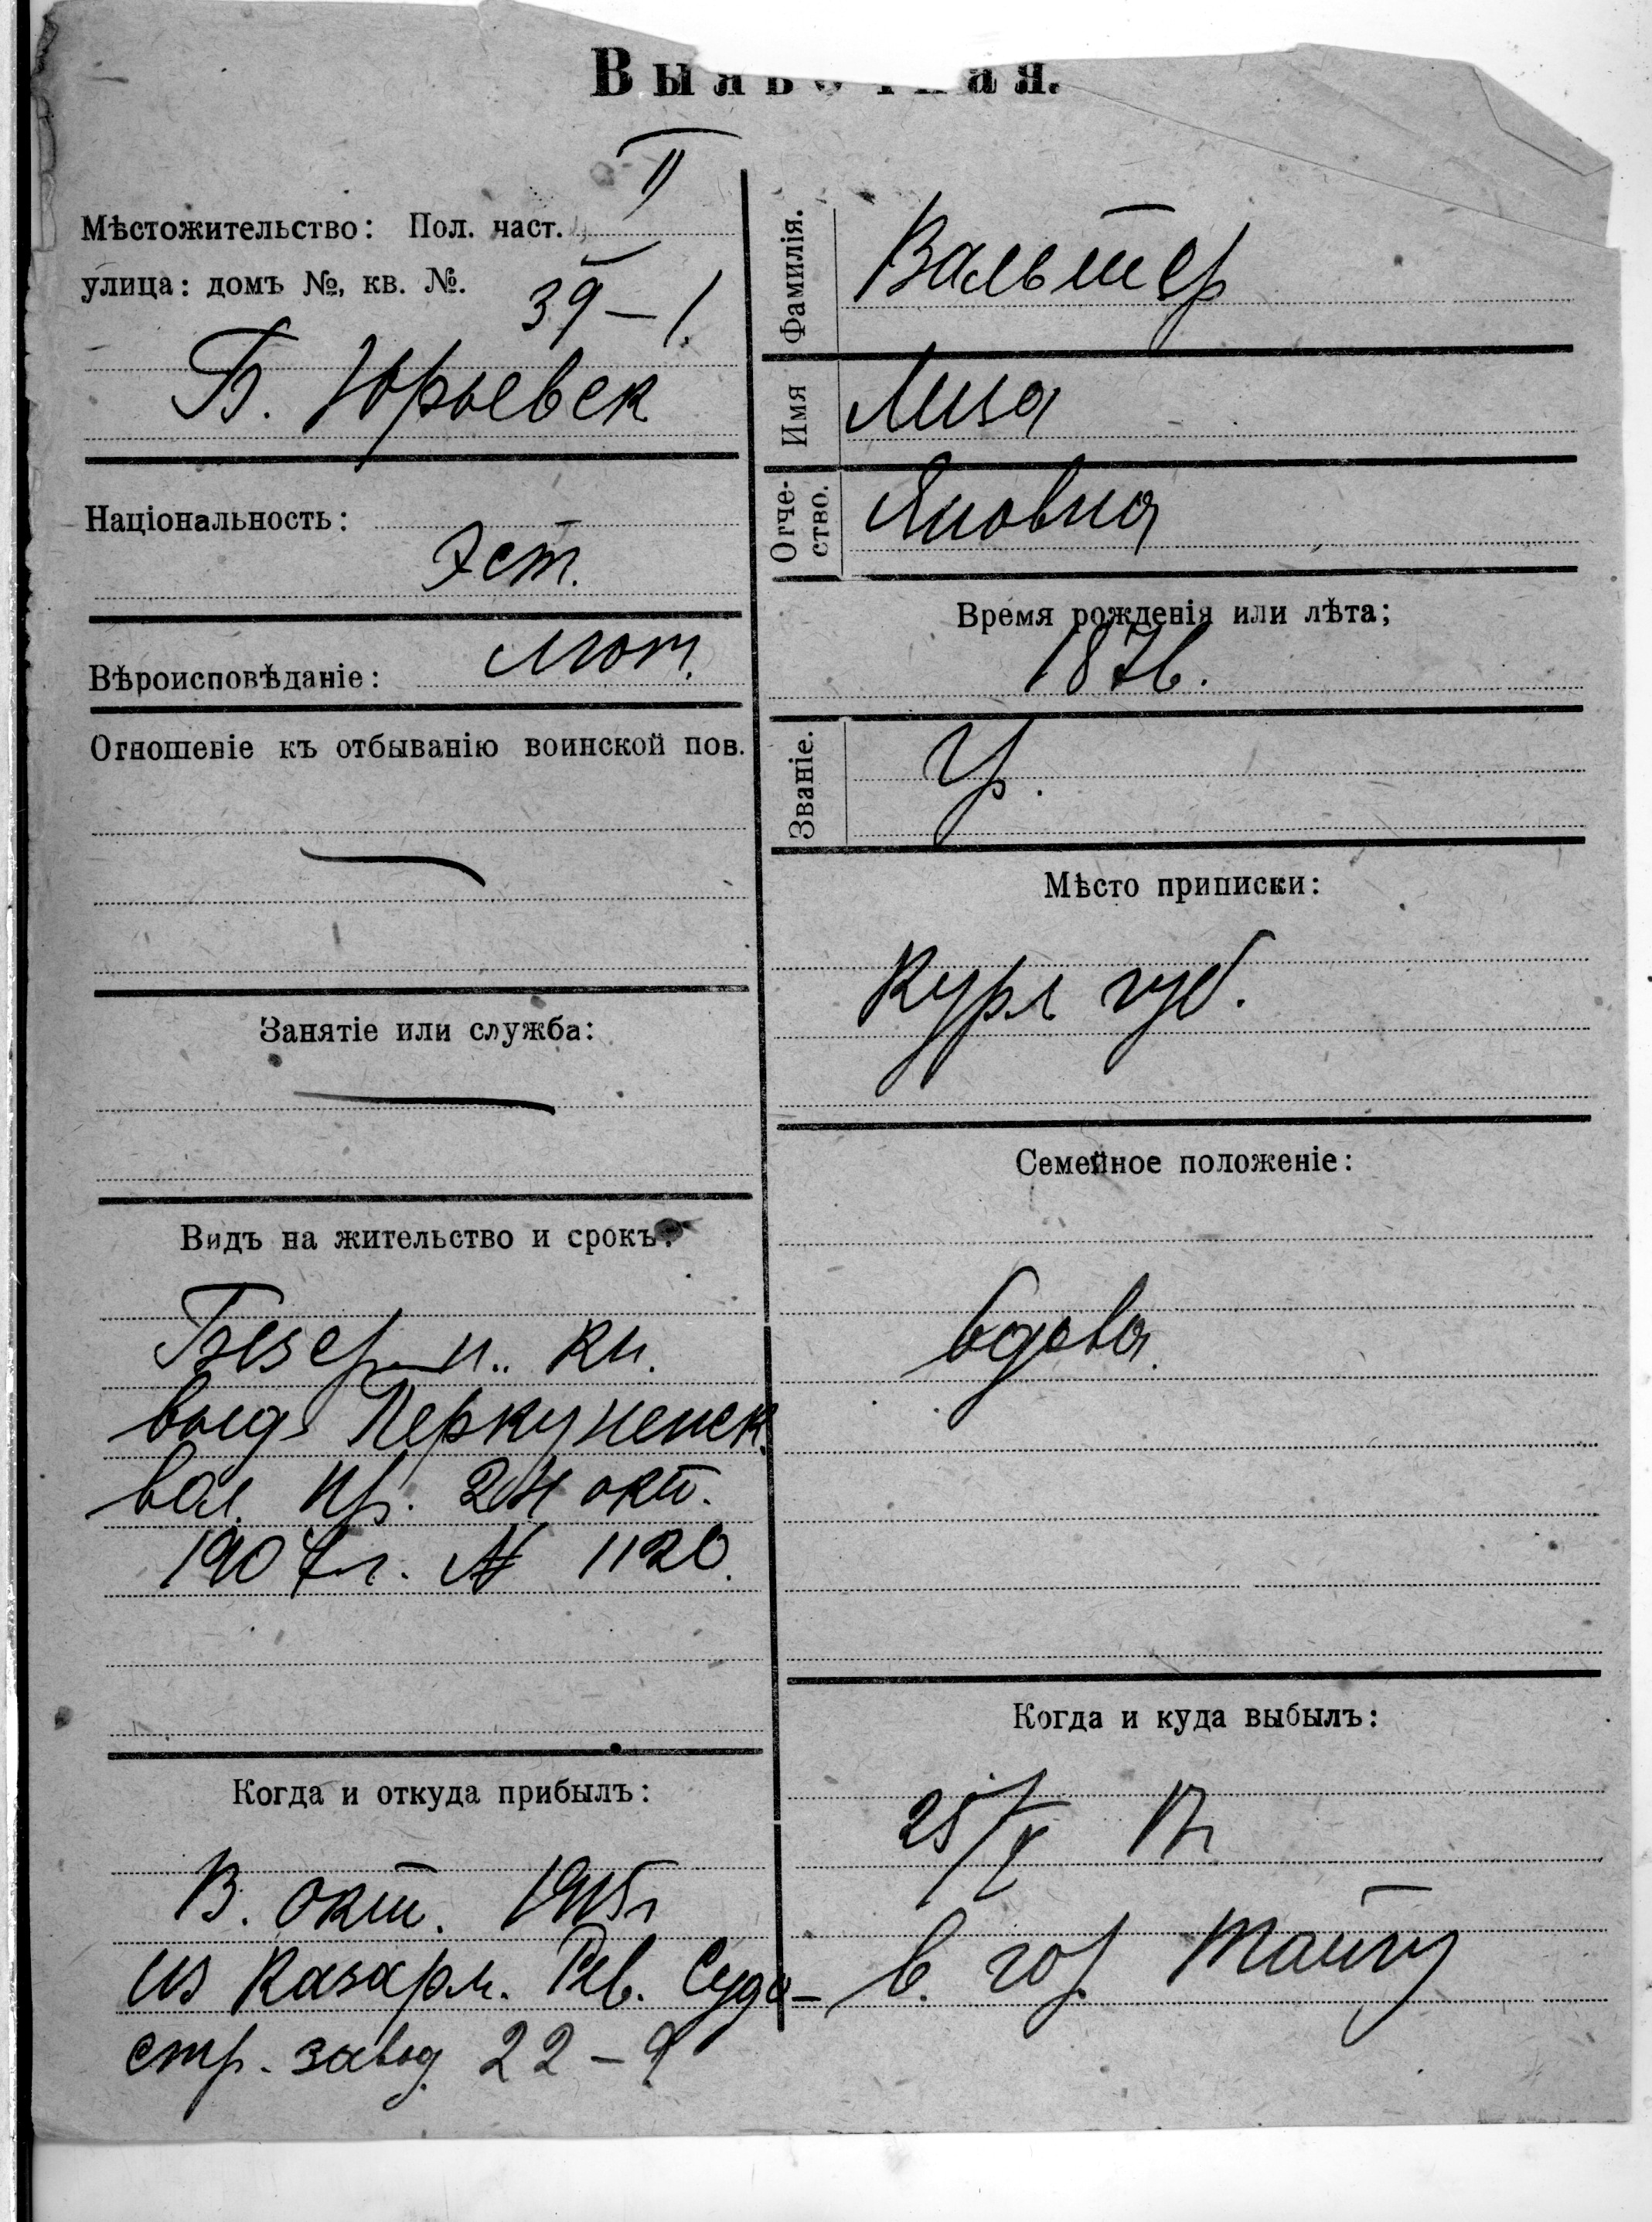 Мѣстожительство: Пол. част. II
улица: домъ №, кв. №. 39 – 1.
Б. Юрьевск
Національность:
Эст.
Вѣроисповѣданіе: Лют.
Отношеніе къ отбыванію воинской пов.
Занятіе или служба:
Видъ на жительство и срокъ:
Безср. п. кн.
выд. Перкуненск.
вол. пр. 24 окт.
1907 г. № 1120.
Когда и откуда прибылъ:
В. окт. 1915 г
из казарм. Рев. Судо-
стр. завод. 22 – 9
Фамилія. Вальтер
Имя Лиза
Отче-
ство. Яновна
Время рожденія или лѣта;
1876.
Званіе. Кр.
Мѣсто приписки:
Курл губ.
Семейное положеніе:
вдова.
Когда и куда выбылъ:
25/V 17 г
в. гор. Тайгу